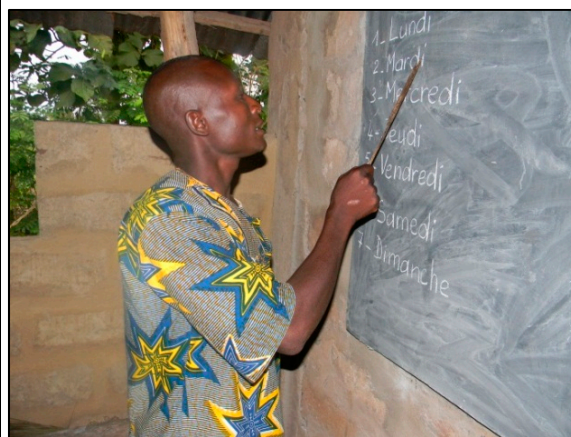 1- Lundi
2- Mardi
3- Mercredi
4- Jeudi
Vendredi
Samedi
7- Dimanche